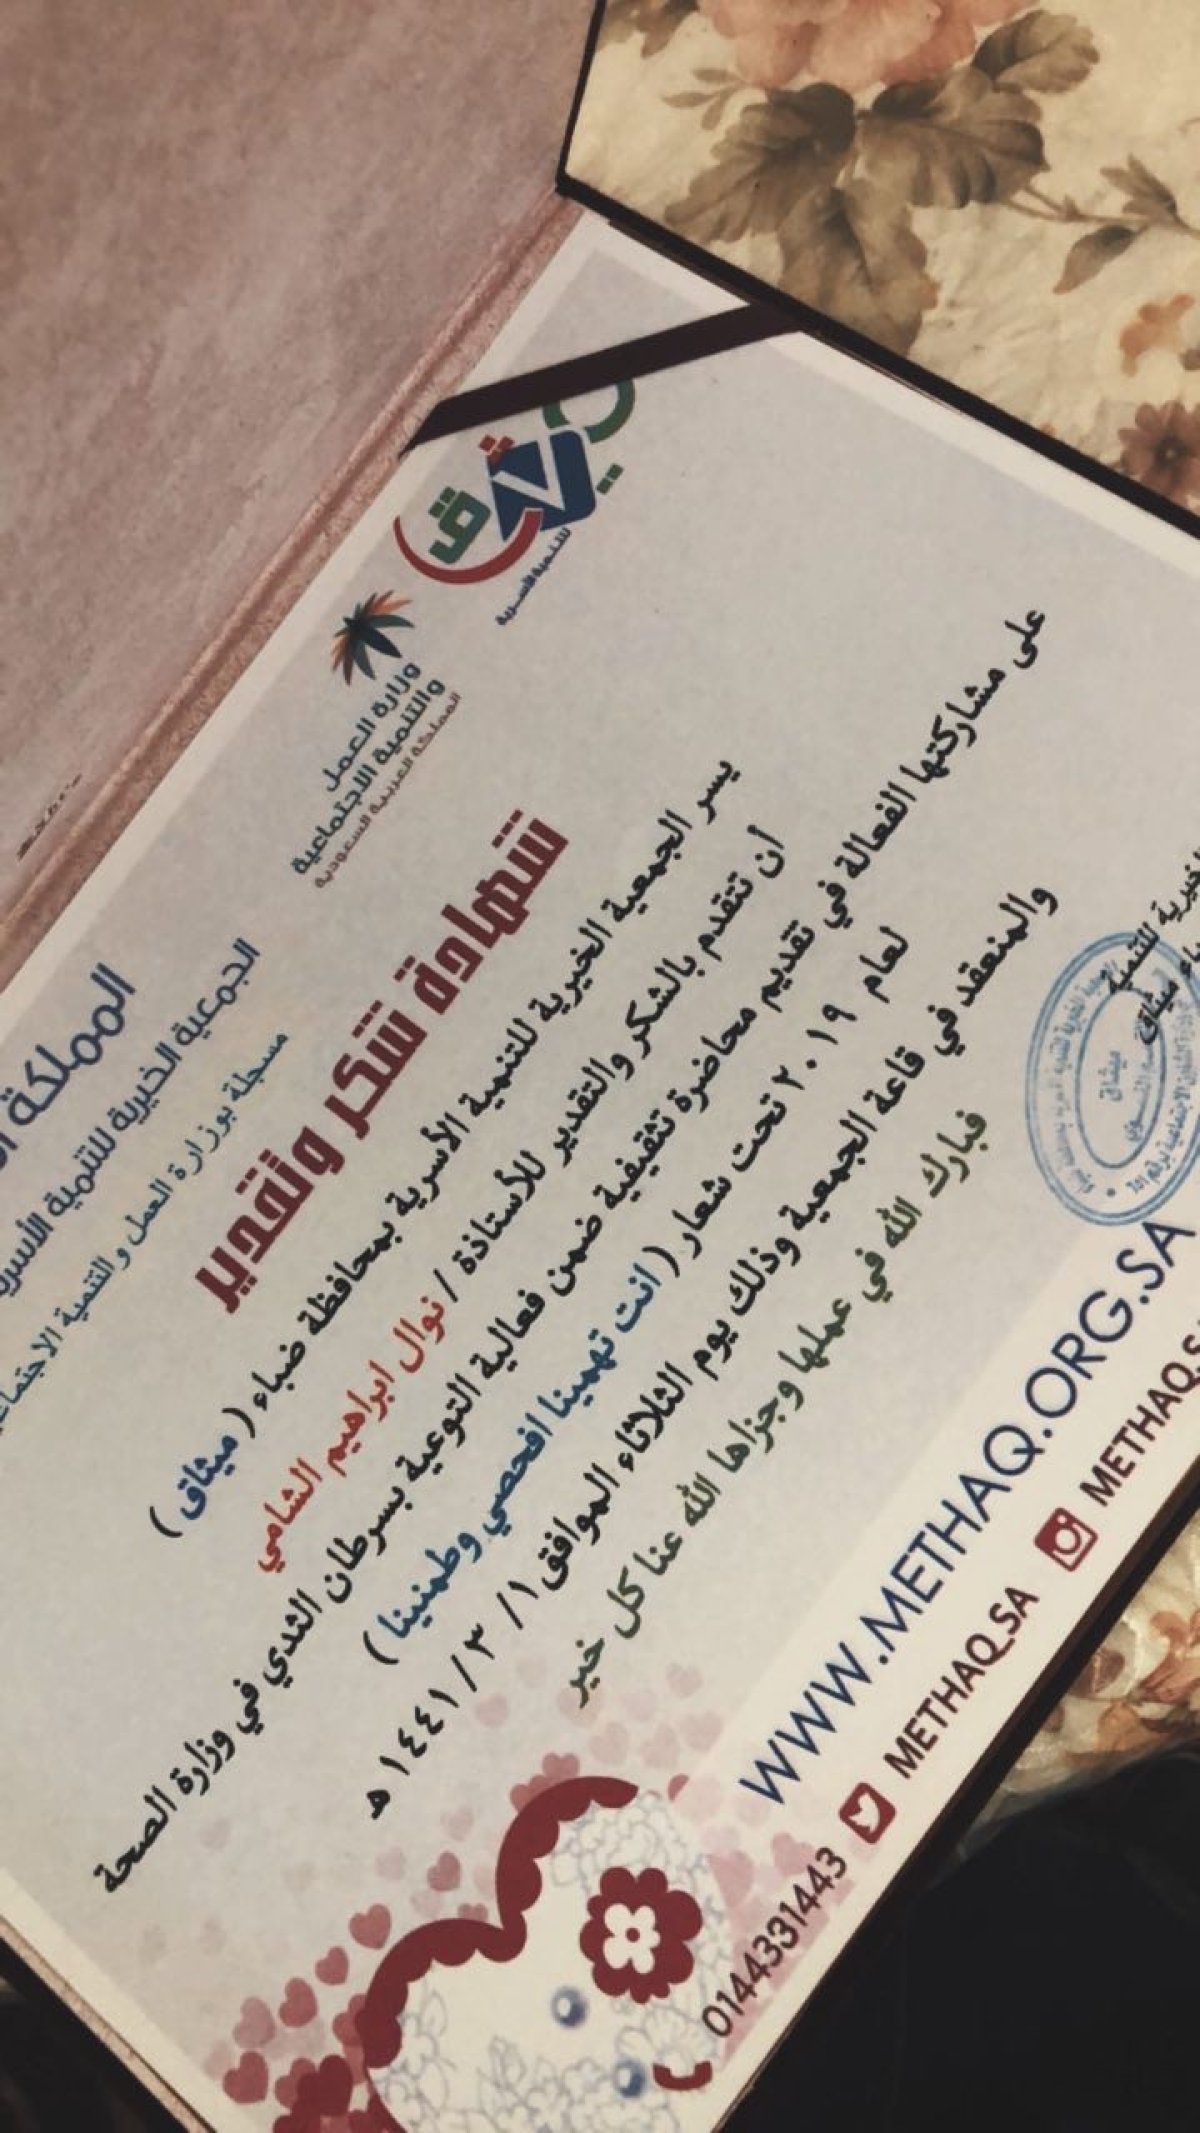 المملكة
الجمعية الخيرية للتنمية الأسرية
مسجلة بوزارة العمل والتنمية الاجتماعية
وزارة العمل
والتنمية الاجتماعية
المملكة العربية السعودية
ميثاق
للتنمية الأسرية
شهادة شكر وتقدير
يسر الجمعية الخيرية للتنمية الأسرية بمحافظة ضباء ( ميثاق )
أن تتقدم بالشكر والتقدير للأستاذة / نوال ابراهيم الشامي
على مشاركتها الفعالة في تقديم محاضرة تثقيفية ضمن فعالية التوعية بسرطان الثدي في وزارة الصحة
لعام ٢٠١٩ تحت شعار ( انت تهمينا افحصي وطمنينا )
والمنعقد في قاعة الجمعية وذلك يوم الثلاثاء الموافق ١ / ٣ / ١٤٤١ هـ
فبارك الله في عملها وجزاها الله عنا كل خير
الخيرية للتنمية
ميثاق
ميثاق
WWW.METHAQ.ORG.SA
0144331443 METHAQ_SA METHAQ.S